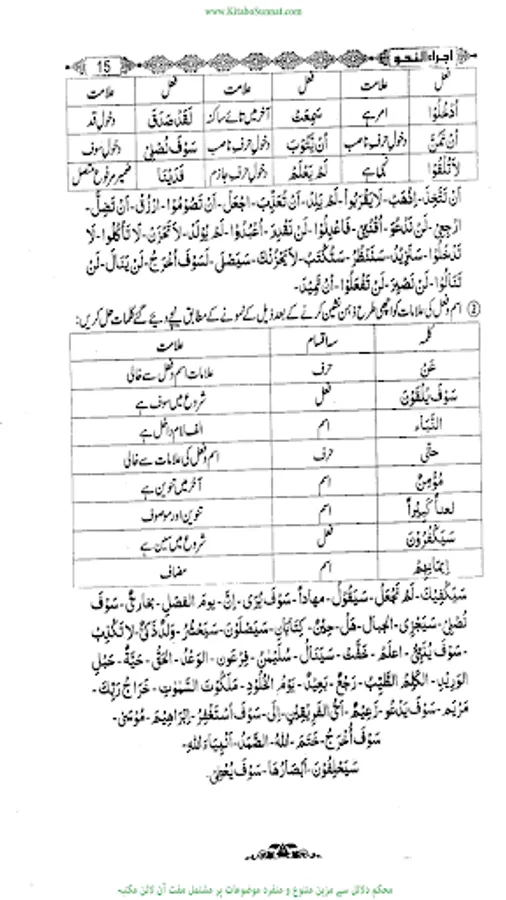 www.KitaboSunnat.com
اجراء النحو 15
فعل علامت فعل علامت فعل علامت
اُدْخُلُوْا امر ہے سَمِعَتْ آخر میں تائے ساکنہ لَقَدْ صَدَقَ دخولِ قد
دخولِ حرف ناصب اَنْ يَّتُوْبَ دخولِ حرف ناصب سَوْفَ نُصْلِيْ دخولِ سوف
لَا تُلْقُوْا نہی ہے لَمْ يَعْلَمْ دخولِ حرف جازم ضمیر مرفوع متصل
اَنْ تَتَّخِذَ۔ اِذْهَبْ۔ لَا يَقْرَبُوْا۔ لَمْ يَلِدْ۔ اَنْ تُعَذِّبَ۔ اِجْعَلْ۔ اَنْ تَصُوْمُوْا۔ اَنْ تَضِلَّ۔
اِرْجِعِيْ۔ لَنْ نَدْعُوَ۔ اُقْنُتِيْ۔ فَاعْدِلُوْا۔ لَنْ نَقْدِرَ۔ اُعْبُدُوْا۔ لَمْ يُوْلَدْ۔ لَا تَحْزَنْ۔ لَا تَأْكُلُوْا۔ لَا
تَدْخُلُوْا۔ سَنَزِيْدُ۔ سَنَنْظُرُ۔ سَنَكْتُبُ۔ لَا يَحْزُنْكَ۔ سَيَصْلٰى۔ لَسَوْفَ اُخْرَجُ۔ لَنْ يَنَالَ۔ لَنْ
تَنَالُوْا۔ لَنْ نَصْبِرَ۔ لَنْ تَفْعَلُوْا۔ اَنْ تَمِيْدَ۔
② اسم و فعل کی علامات کو اچھی طرح ذہن نشین کرنے کے بعد ذیل کے نمونے کے مطابق نیچے دیئے گئے کلمات حل کریں:
کلمہ سہ اقسام علامت
عَنْ حرف علامات اسم و فعل سے خالی
سَوْفَ يَلْقَوْنَ فعل شروع میں سوف ہے
اسم الف لام داخل ہے
حتّٰى حرف اسم و فعل کی علامات سے خالی
مُؤْمِنٌ اسم آخر میں تنوین ہے
لعناً كَبِيْراً اسم تنوین اور موصوف
سَيَكْفُرُوْنَ فعل شروع میں سین ہے
اِيْمَانِهِمْ اسم مضاف
سَيَكْفِيْكَ۔ لَمْ تَجْعَلْ۔ سَيَقُوْلُ۔ مهاداً۔ سَوْفَ يُرٰى۔ اِنَّ۔ يومَ الفصلِ۔ سَوْفَ
نُصْلِيْ۔ سَيَجْزِي۔ الجبال۔ هَلْ۔ كِتَابَانِ۔ سَيَصْلَوْنَ۔ وَلَدٌ ذَكِيٌّ۔ لا تكذب
۔ اعلم۔ سَيَنَالُ۔ سُلَيْمٰنُ۔ فِرْعَون۔ الوَعْدُ۔ الحَقُّ۔ حَيَّةٌ۔ حَبْلِ
الوَرِيْدِ۔ الكَلِمُ الطَّيِّبُ۔ رَجْعٌ۔ بَعِيْدٌ۔ يَوْمُ الْخُلُوْدِ۔ مَلَكُوْتَ السَّمٰوٰتِ۔ خَرَاجُ رَبِّكَ۔
مَرْيَم۔ سَوْفَ يَدْعُو۔ زَعِيْمٌ۔ اَيُّ الفَرِيْقَيْنِ۔ اِلٰى۔ سَوْفَ اَسْتَغْفِرُ۔ اِبْرَاهِيْمَ۔ مُوْسٰى۔
سَوْفَ اُخْرَجُ۔ خَتَمَ۔ اللهُ۔ الصَّمَدُ۔ اَنْبِيَاءَ اللهِ۔
سَيَحْلِفُوْنَ۔ اَبْصَارُهَا۔ سَوْفَ يُعْطِيْ۔
محکم دلائل سے مزین متنوع و منفرد موضوعات پر مشتمل مفت آن لائن مکتبہ